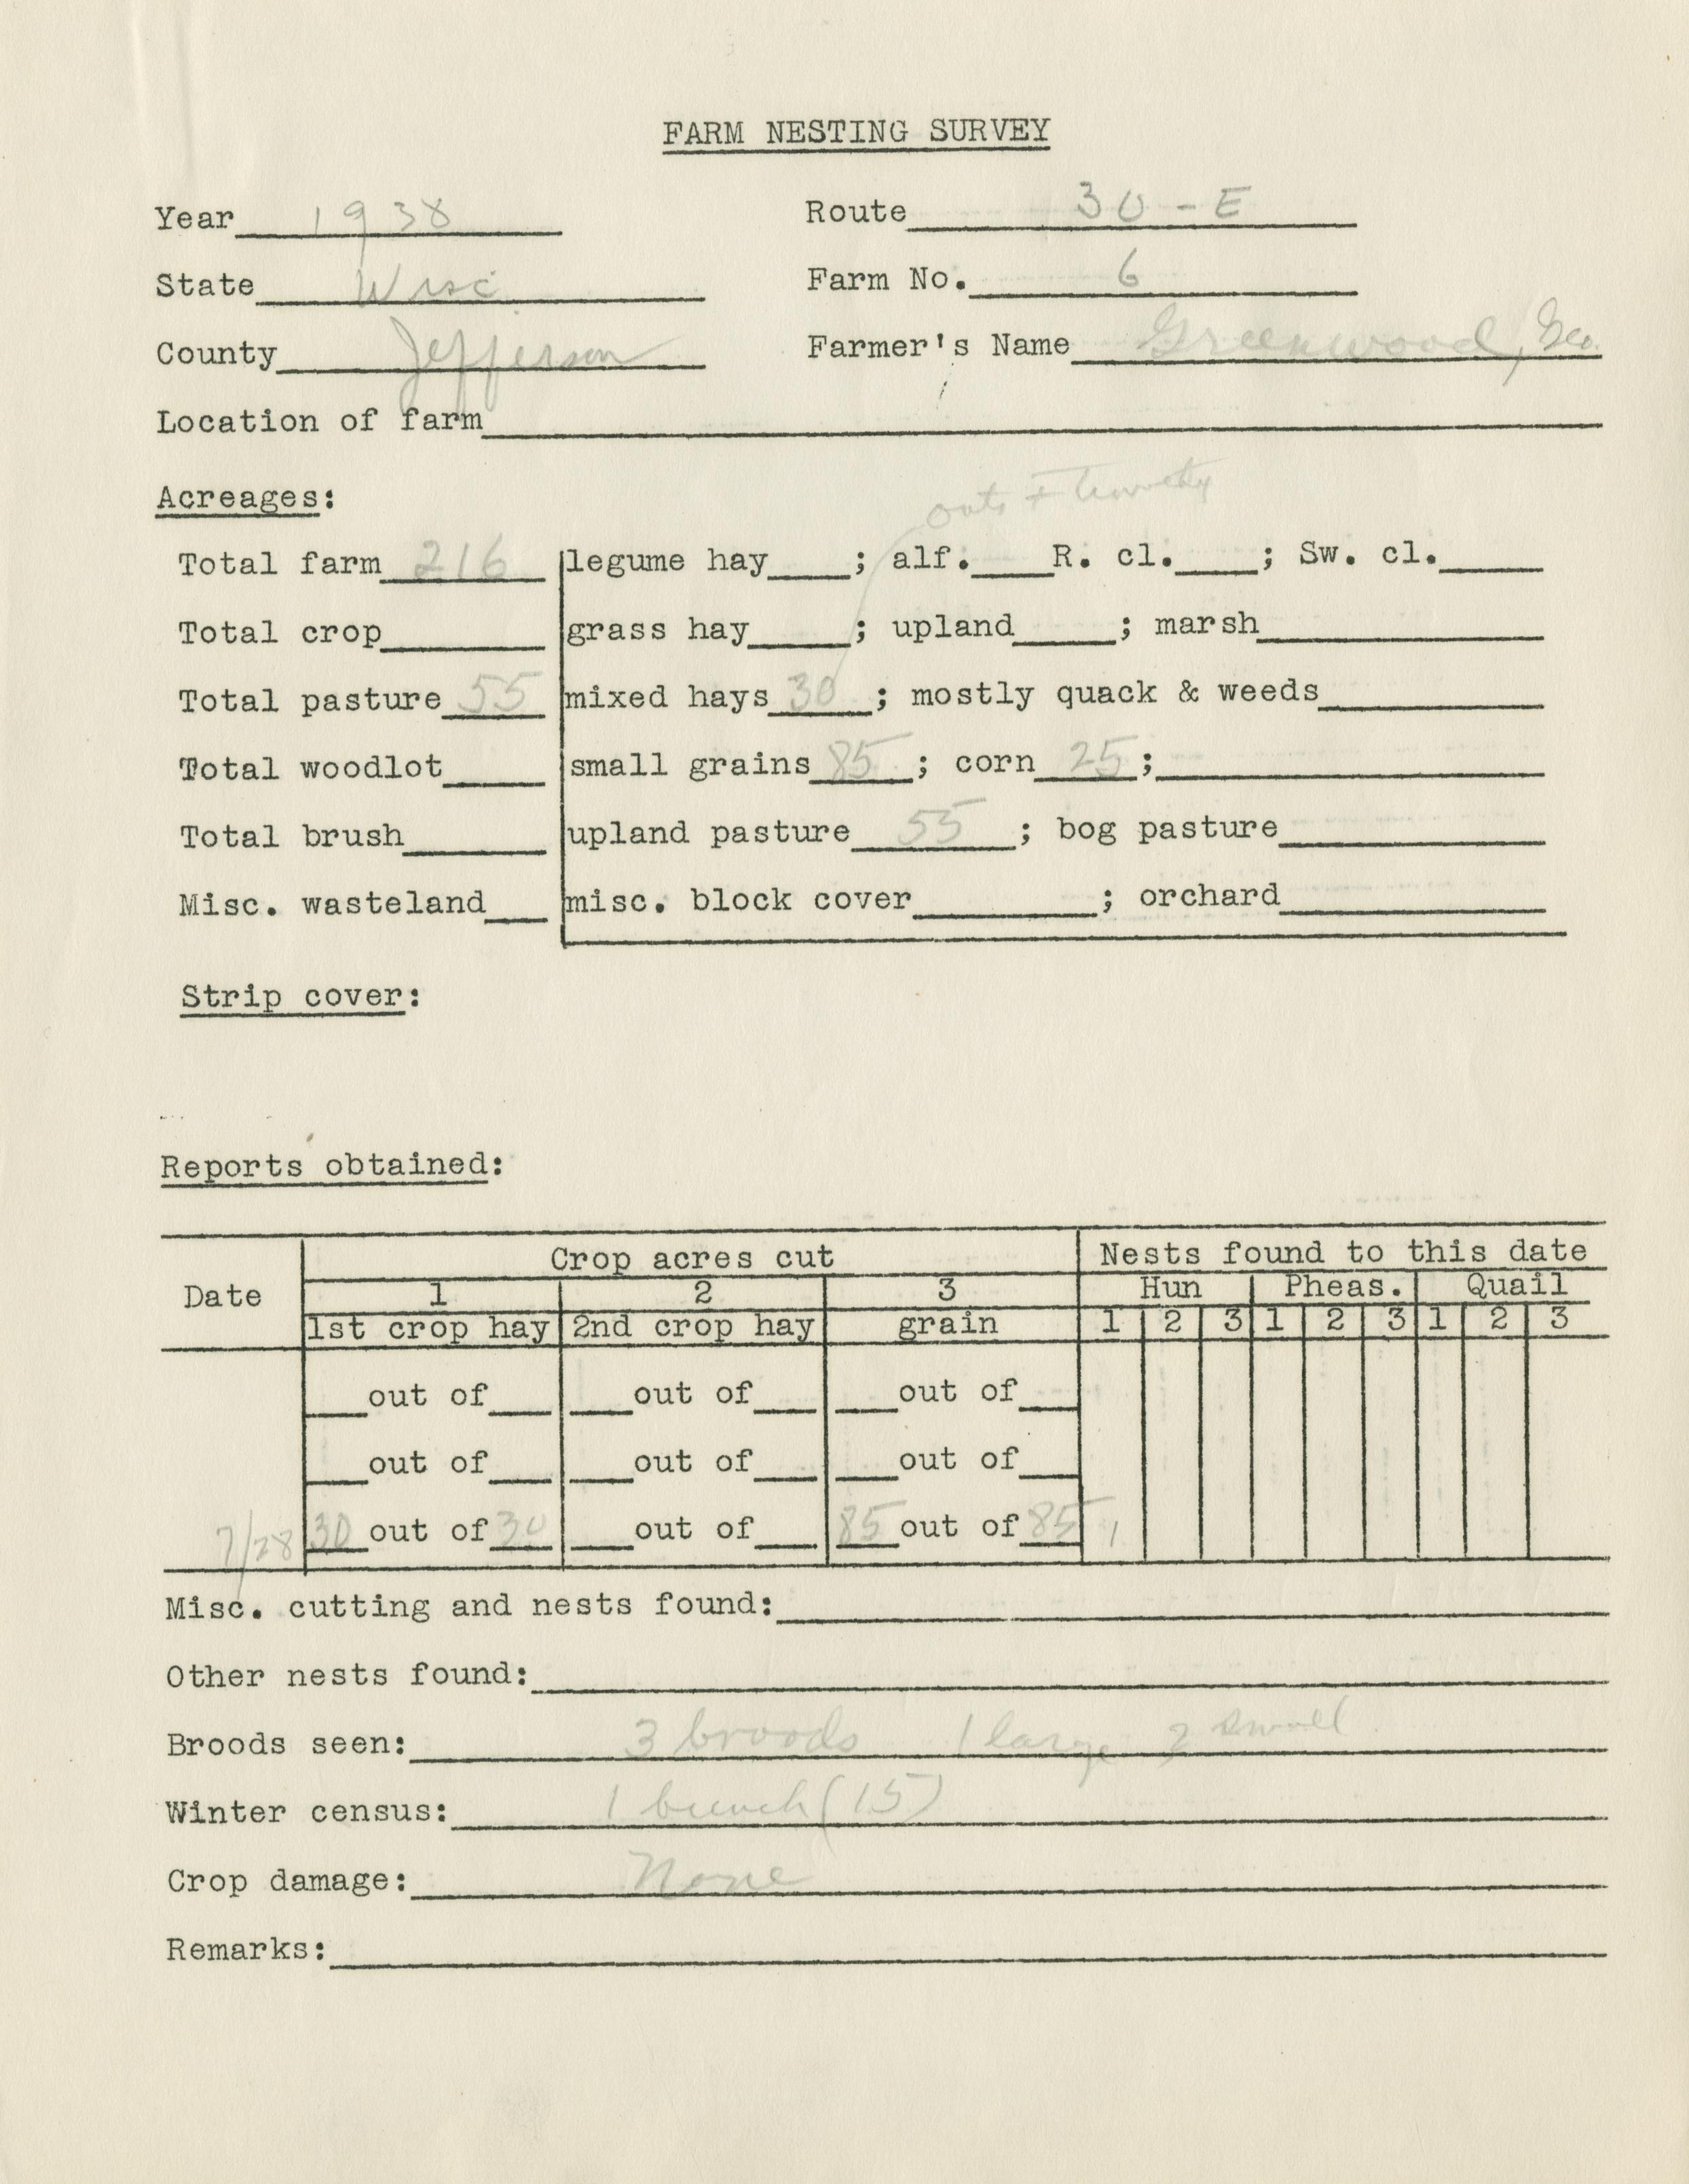 FARM NESTING SURVEY
Year 1938 Route 30-E
State Wisc. Farm No. 6
County Jefferson Farmer's Name Greenwood, Geo.
Location of farm
Acreages: oats + timothy
Total farm 216 legume hay ; alf. R. cl. ; Sw. cl.
Total crop grass hay ; upland ; marsh
Total pasture 55 mixed hays 30 ; mostly quack & weeds
Total woodlot small grains 85 ; corn 25 ;
Total brush upland pasture 55 ; bog pasture
Misc. wasteland misc. block cover ; orchard
Strip cover:
Reports obtained:
Crop acres cut Nests found to this date
Date 1 2 3 Hun Pheas. Quail
1st crop hay 2nd crop hay grain 1 2 3 1 2 3 1 2 3
out of out of out of
out of out of out of
7/28 30 out of 30 out of 85 out of 85 1
Misc. cutting and nests found:
Other nests found:
Broods seen: 3 broods 1 large 2 small
Winter census: 1 bunch (15)
Crop damage: None
Remarks: